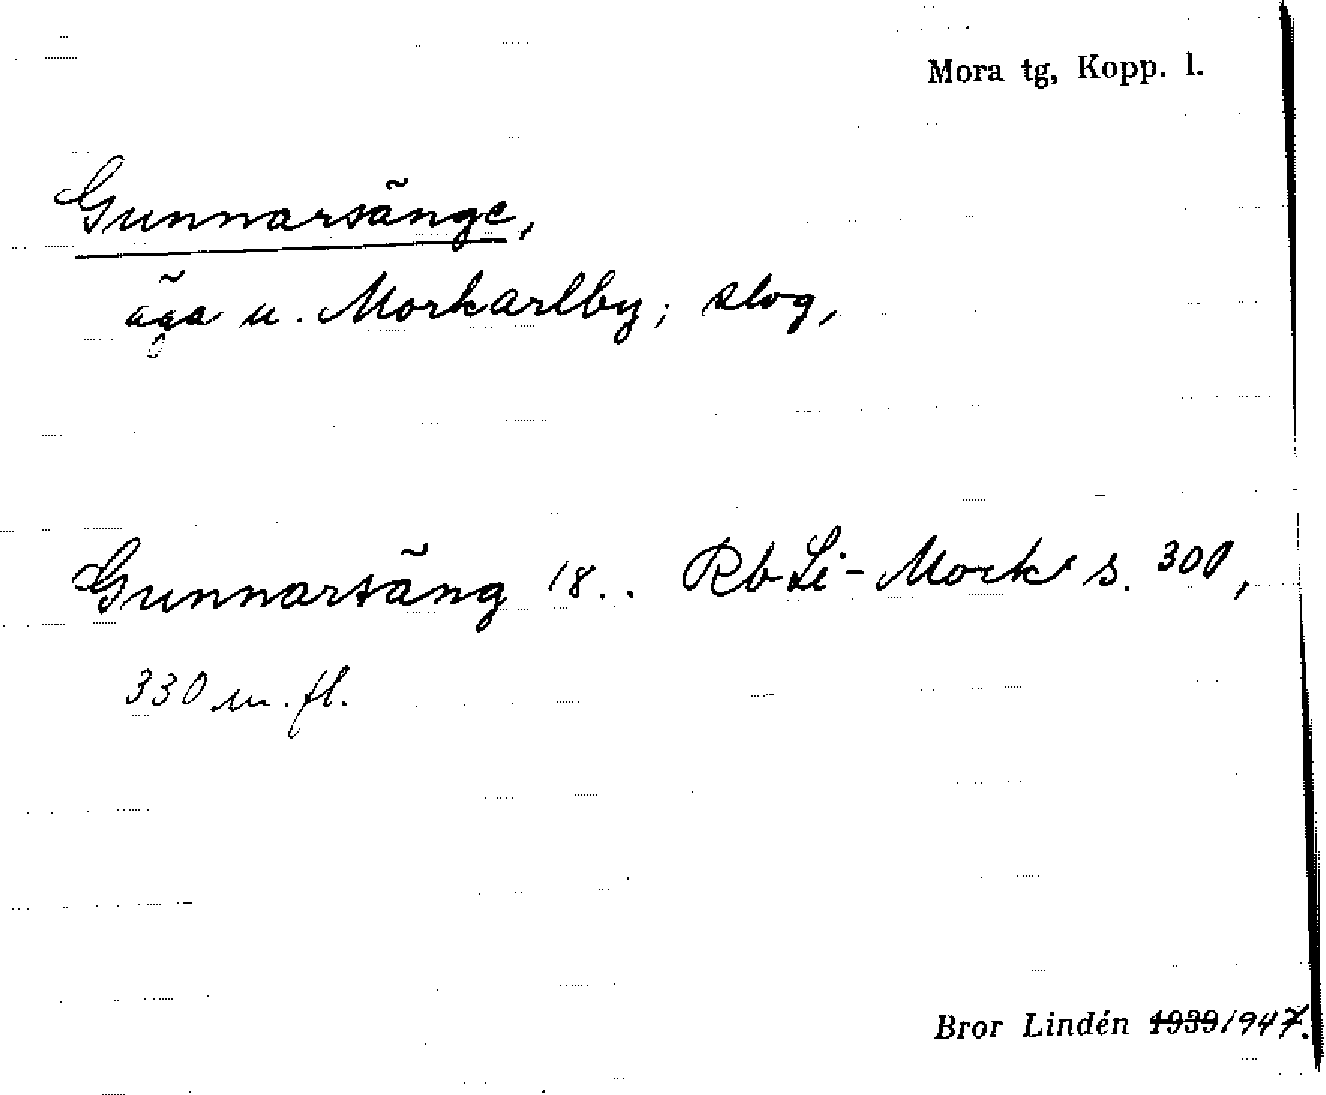 Mora tg, Kopp. l.
Gunnarsänge,
äga u. Morkarlby; slog,
Gunnarsäng 18.. Rb Li-Mork s. 300,
330 m. fl.
Bror Lindén 1939 1947.